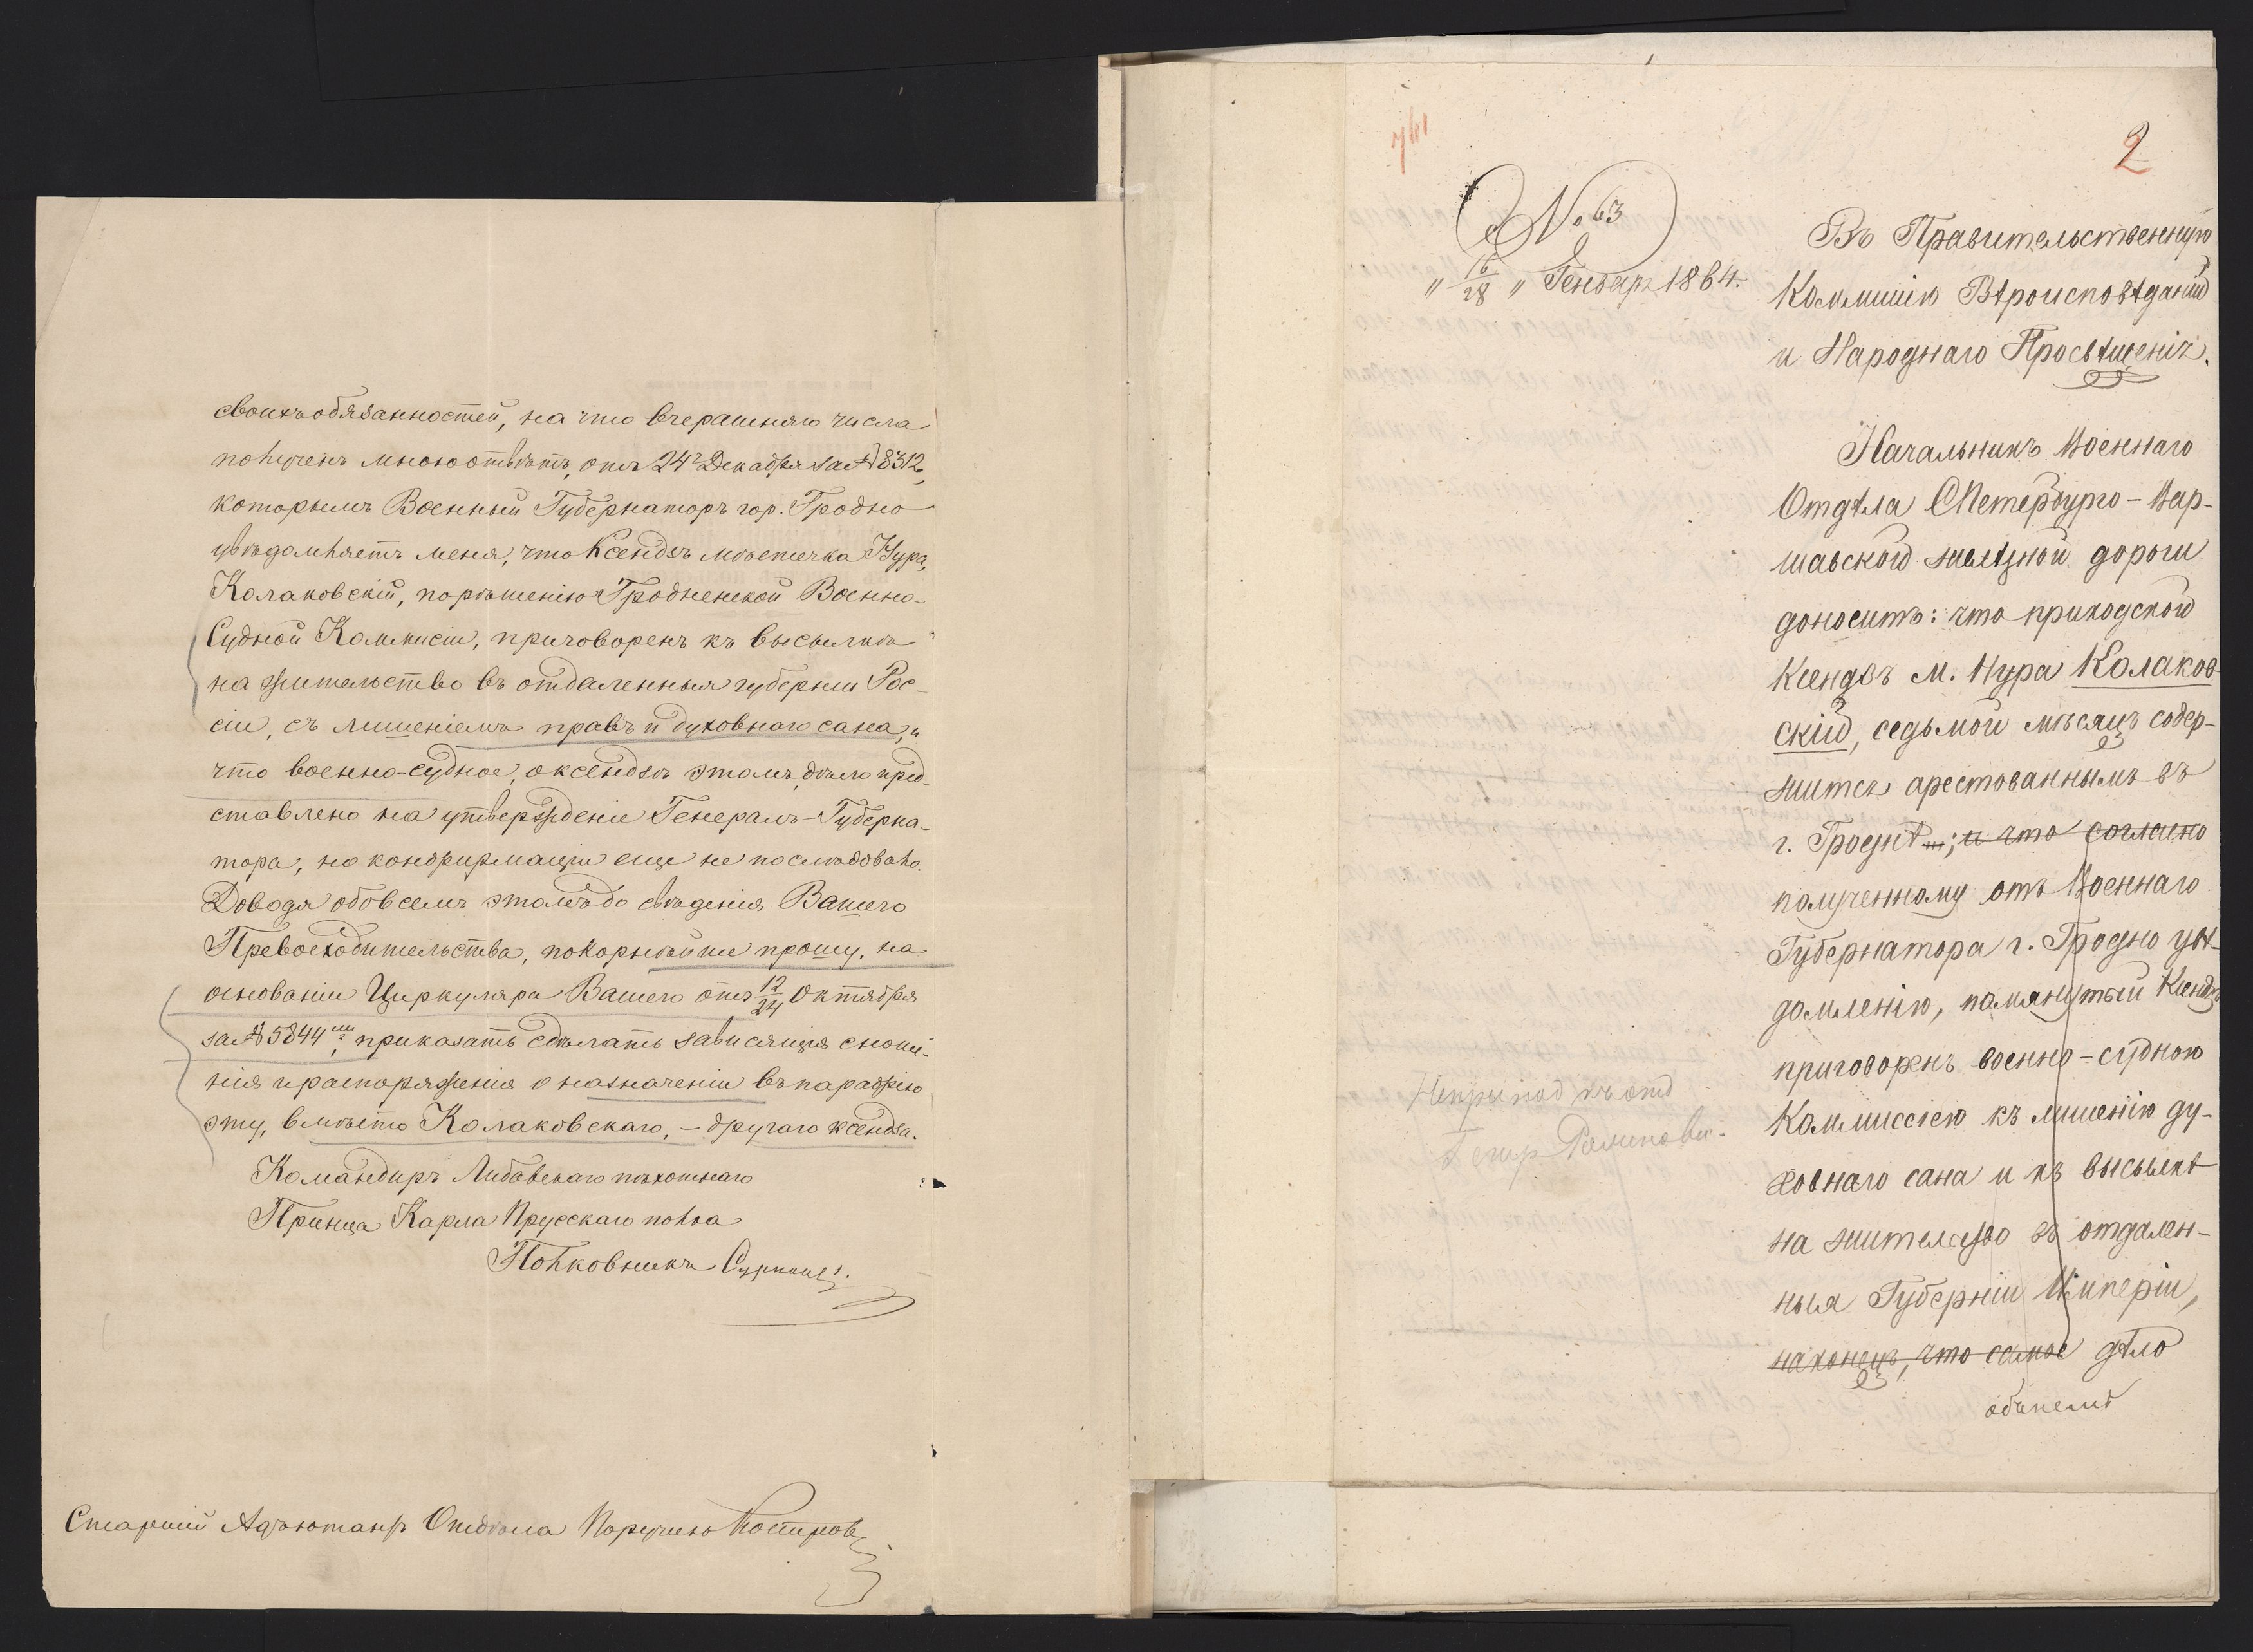 своихъ обязанностей, на что вчерашняго числа
полученъ мною отвѣтъ, отъ 24го Декабря за № 8312,
которымъ Военный Губернаторъ гор. Гродно
увѣдомляетъ меня, что Ксендзъ мѣстечка Нура,
Колаковскій, по рѣшенію Гродненской Военно-
Судной Коммисіи, приговоренъ къ высылкѣ
на жительство въ отдаленныя губерніи Рос-
сіи, съ лишеніемъ правъ и духовнаго сана, и
что военно-судное, о ксендзѣ этомъ, дѣло пред-
ставлено на утвержденіе Генералъ-Губерна-
тора; но конфирмаціи еще не послѣдовало.
Доводя обо всемъ этомъ до свѣденія Вашего
Превосходительства, покорнѣйше прошу, на
основаніи Циркуляра Вашего отъ 12/24 Октября
за № 5844мъ, приказать сдѣлать зависящія сноше-
нія и распоряженія о назначеніи въ парафію
эту, вмѣсто Колаковскаго, – другаго ксендза.
Командиръ Либавскаго пѣхотнаго
Принца Карла Прусскаго полка
Полковникъ
Старшій Адъютантъ Отдѣла Поручикъ
2
№ 63
" 16/28 " Генваря 1864.
Въ Правительственную
Коммисію Вѣроисповѣданій
и Народнаго Просвѣщенія.
Начальникъ Военнаго
Отдѣла СПетербурго-Вар-
шавской желѣзной дороги
доноситъ: что приходской
Ксендзъ м. Нура Колаков-
скій, седьмой мѣсяцъ содер-
жится арестованнымъ въ
г. Гроднѣ; и что согласно
полученному отъ Военнаго
Губернатора г. Гродно увѣ-
домленію, помянутый Ксендзъ
приговоренъ военно-судною
Коммиссіею къ лишенію ду-
ховнаго сана и къ высылкѣ
на жительство въ отдален-
ныя Губерніи Имперіи,
наконецъ, что самое дѣло